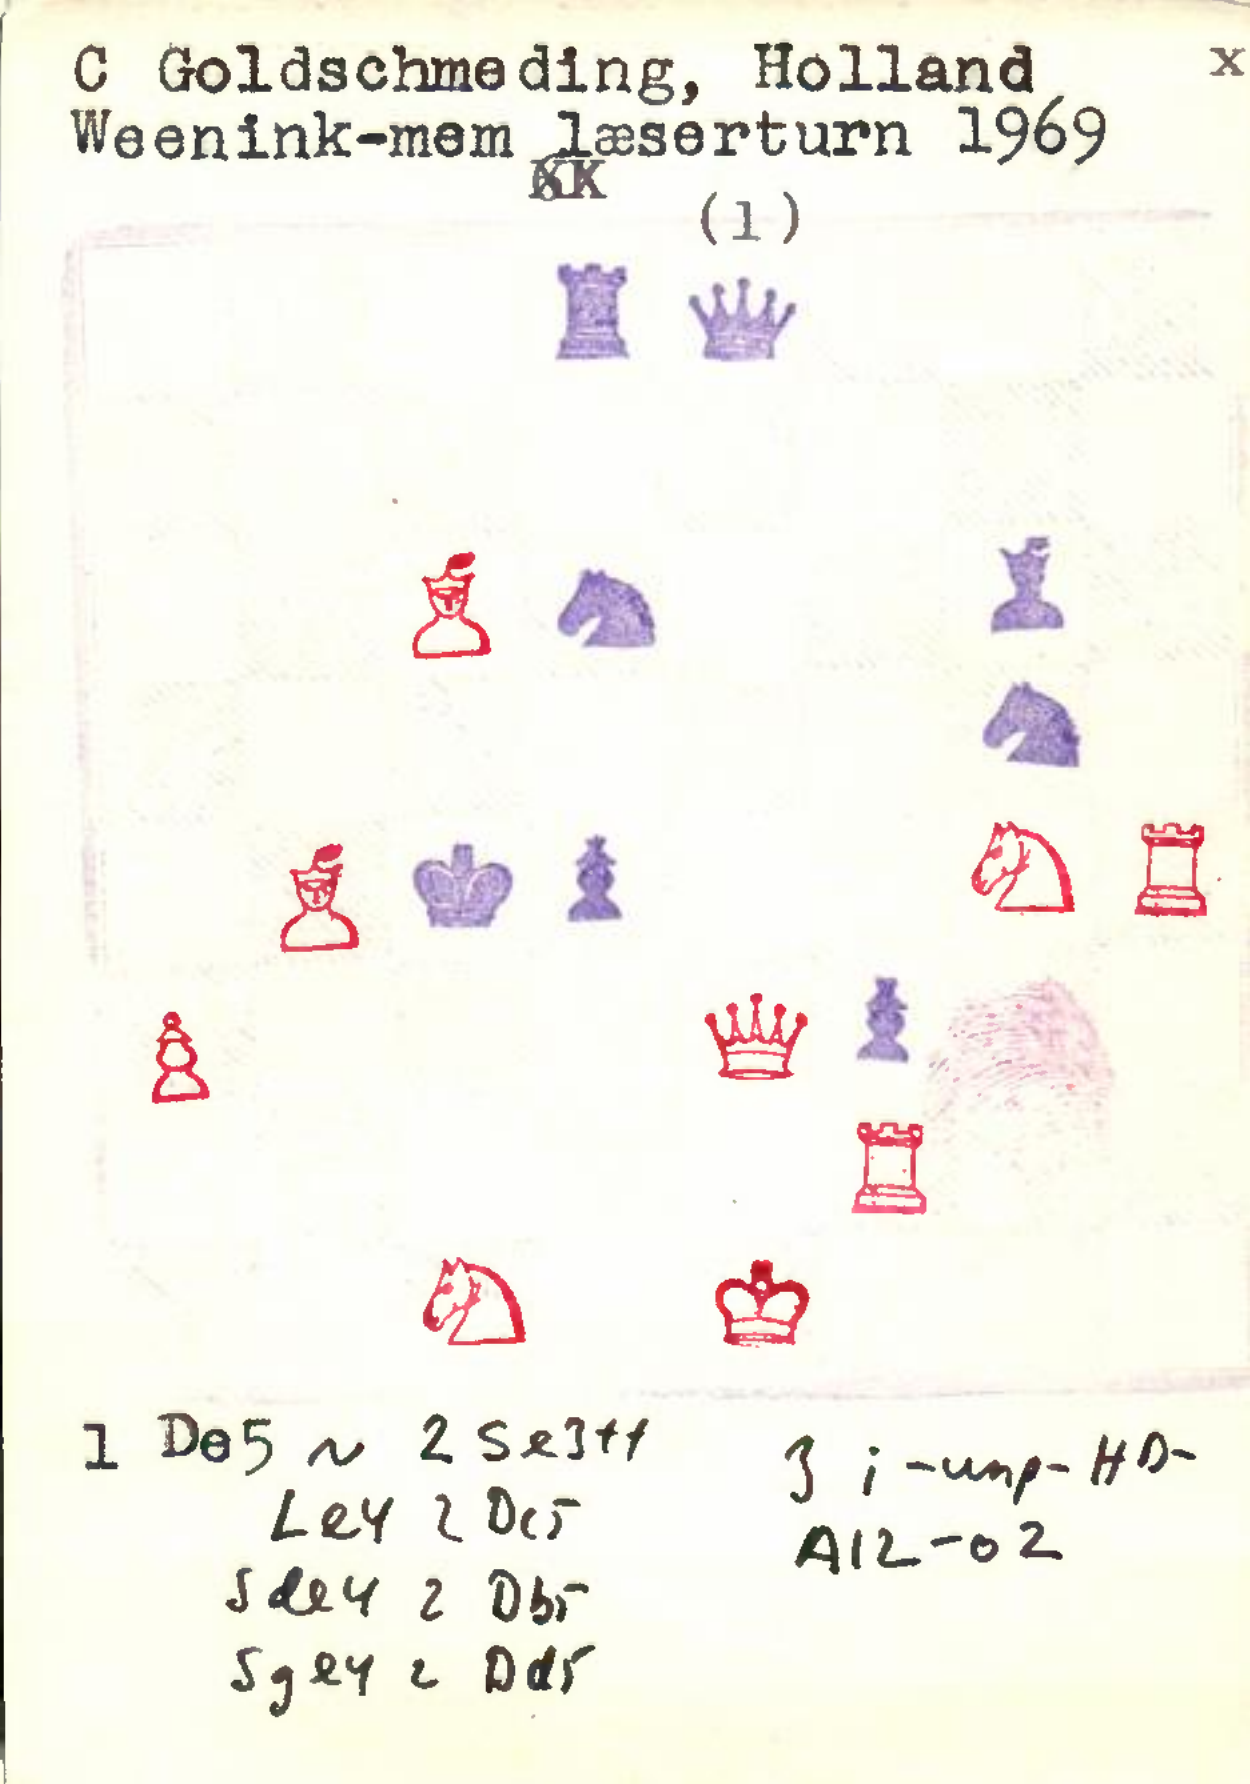 C Goldschmeding, Holland x
Weenink-mem læserturn 1969
KK
(1)
1 De5 ~ 2 Se3++
Le4 2 Dc5
Sde4 2 Db5
Sge4 2 Dd5
3 i-unp-HD-
A12-02